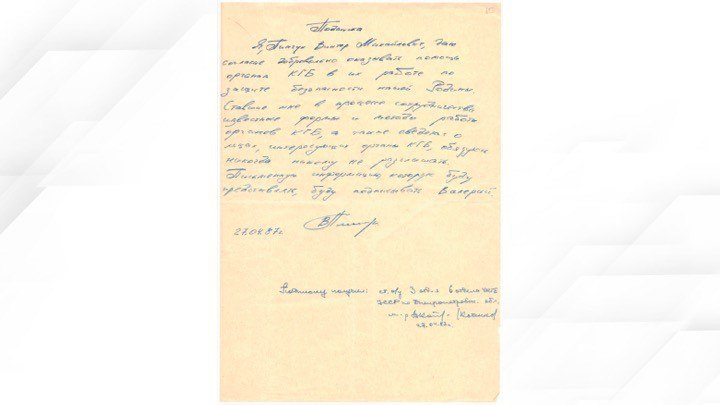 Подписка
Я, Пинчук Виктор Михайлович, даю
согласие добровольно оказывать помощь
органам КГБ в их работе по
защите безопасности нашей Родины
Ставшие мне в процессе сотрудничества
известные формы и методы работы
органов КГБ, а также сведения о
лицах, интересующих органы КГБ, обязуюсь
никогда никому не разглашать.
Письменную информацию, которую буду
представлять, буду подписывать Валерий.
27.04.87г.
Подписку получил: ст. о/у 3 отд-я 6 отдела УКГБ
УССР по Днепропетровск. обл.
м-р
27.04.87г.